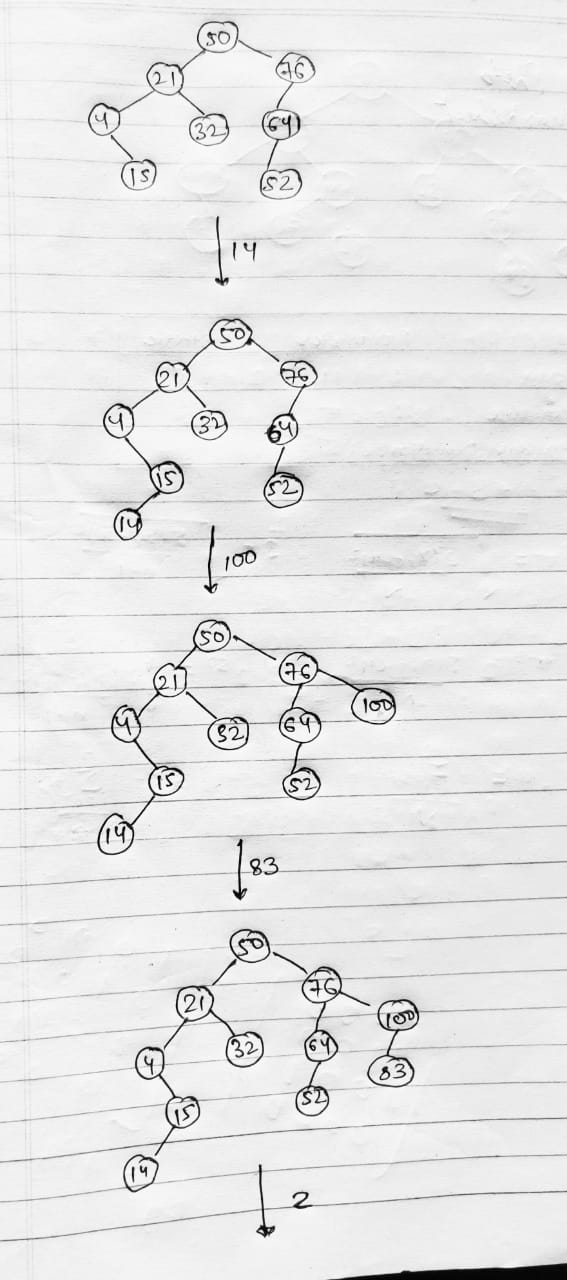 50
21 76
4 32 64
15 52
14
50
21 76
4 32 64
15 52
14
100
50
21 76
4 32 64 100
15 52
14
83
50
21 76 100
4 32 64 83
15 52
14
2